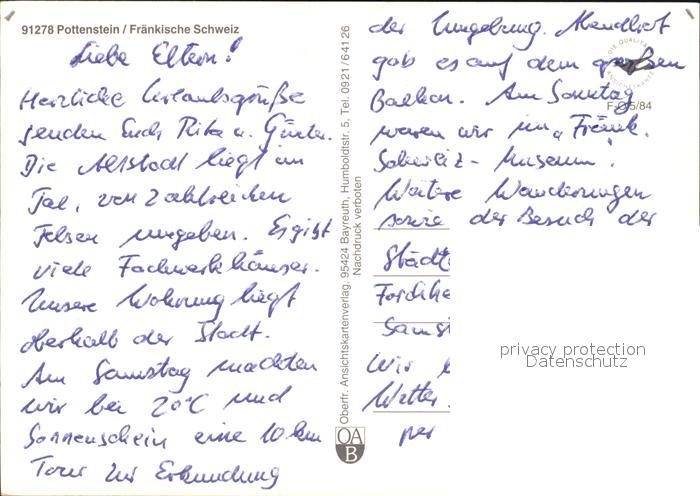 91278 Pottenstein / Fränkische Schweiz
Liebe Eltern!
Herzliche Urlaubsgrüße
senden Euch Rita u. Günter.
Die Altstadt liegt im
Tal, von zahlreichen
Felsen umgeben. Es gibt
viele Fachwerkhäuser.
Unsere Wohnung liegt
oberhalb der Stadt.
Am Samstag machten
wir bei 20°C und
Sonnenschein eine 10 km
Tour zur Erkundung
der Umgebung. Abendbrot
gab es auf dem großen
Balkon. Am Sonntag
waren wir im „Fränk.
Schweiz-Museum".
Weitere Wanderungen
sowie der Besuch der
Städt
Forchhe
Samst
Wir
Wetter
per
Oberfr. Ansichtskartenverlag, 95424 Bayreuth, Humboldtstr. 5, Tel. 0921/64126
Nachdruck verboten
OA
B
DIE QUALITÄTS
ANSICHTSKARTE
5/84
privacy protection
Datenschutz